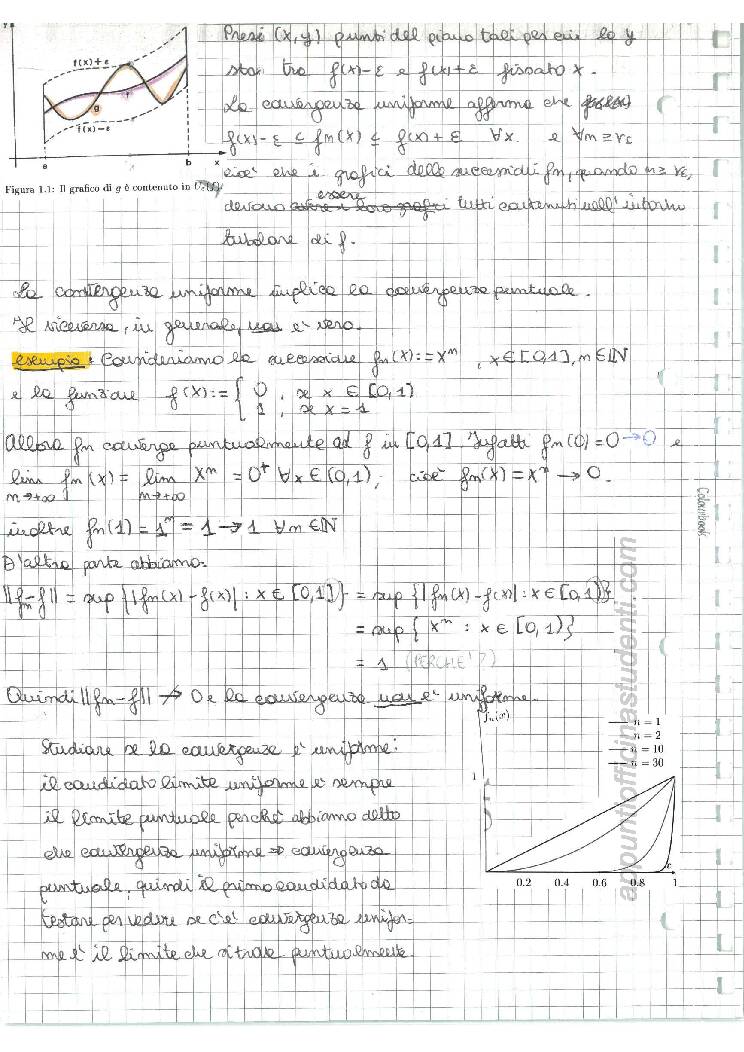 y
f(x)+ε
g
f
f(x)−ε
a
b
x
Figura 1.1: Il grafico di g è contenuto in
Presi (x,y) punti del piano tali per cui la y
stan tra f(x)-ε e f(x)+ε fissato x.
La convergenza uniforme afferma che
f(x)-ε ≤ fn(x) ≤ f(x)+ε ∀x. e ∀n≥νε
cioè che i grafici delle successioni fn, quando n≥νε,
devono essere tutti contenuti nell'intorno
tubolare di f.
La convergenza uniforme implica la convergenza puntuale.
Il viceversa, in generale, non è vero.
esempio: Consideriamo la successione fn(x):=xⁿ, x∈[0,1], n∈ℕ
e la funzione f(x):= { 0, se x∈[0,1)
1, se x=1
Allora fn converge puntualmente ad f in [0,1]. Infatti fn(0)=0→0 e
lim fn(x) = lim xⁿ = 0⁺ ∀x∈(0,1), cioè fn(x)=xⁿ→0.
n→+∞ n→+∞
inoltre fn(1)=1ⁿ=1→1 ∀n∈ℕ
D'altra parte abbiamo:
||fn-f|| = sup{|fn(x)-f(x)|: x∈[0,1]} = sup{|fn(x)-f(x)|: x∈[0,1)}
= sup{xⁿ: x∈[0,1)}
= 1 (PERCHE'?)
Quindi ||fn-f|| ↛ 0 e la convergenza non è uniforme.
Studiare se la convergenza è uniforme:
il candidato limite uniforme è sempre
il limite puntuale perchè abbiamo detto
che convergenza uniforme ⇒ convergenza
puntuale, quindi il primo candidato da
testare per vedere se c'è convergenza unifor=
me è il limite che si trova puntualmente.
fn(x)
n = 1
n = 2
n = 10
n = 30
1
0.2 0.4 0.6 0.8 1
Colourbook
appuntiofficinastudenti.com